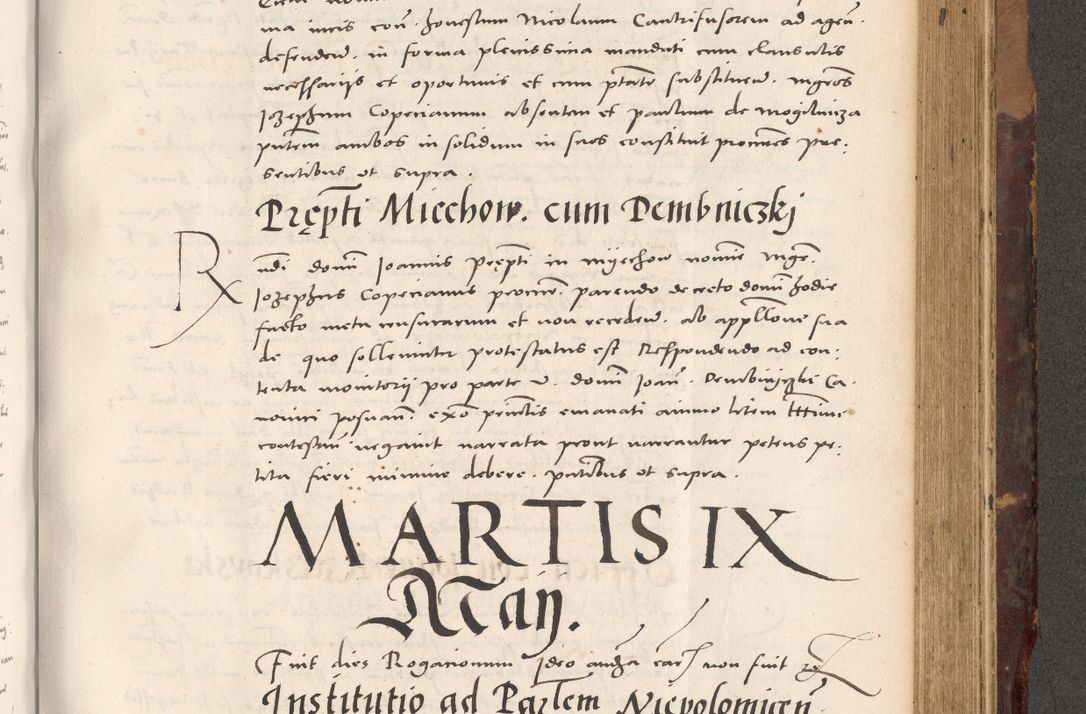 ma incis coñ. honestum Nicolaum Cantrifusorem ad agen̄.
defendeñ. in forma plenissima mandati cum clausulis
necessarijs et oportunis et cum ptāte substituen̄. mgrōs
Jozephum Copecianum absentem et paulum de mogilnicza
pñtem ambos in solidum in suos constituit procũres pre-
sentibus et supra.
Pręp̄ti Miechow. cum Dembniczkj
Rndi domĩ Joannis pręp̄ti in myechow nomĩe mgr.
Jozephus Copecianus procur̃. parendo decreto domĩ hodie
facto metu censurarum et non receden̄. ab app̄llōne sua
de quo sollenniter protestatus est Respondendo ad con-
tenta monitorij pro parte v. domĩ Joañ. Dembnyczki Ca.
nonici posnanĩ exõ prñtis emanati animo litem
contestañ negavit narrata prout narrantur petens pe-
tita fieri minime debere. pñtibus ut supra.
MARTIS IX
May.
Fuit dies Rogacionum Ideo audĩa non fuit
Institutio ad Par̄lem Niepolomicen̄.